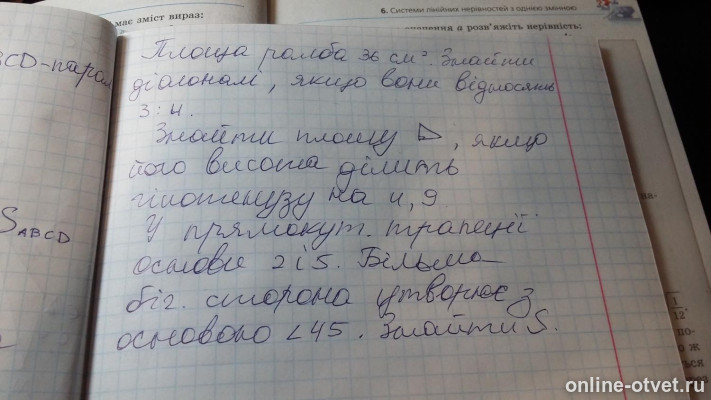 має зміст вираз:
6. Системи лінійних нерівностей з однією змінною
а розв'яжіть нерівність:
BCD-парал
Площа ромба 36 см². Знайти
діагоналі, якщо вони відносять
3 : 4.
Знайти площу , якщо
його висота ділить
гіпотенузу на 4, 9
SABCD
У прямокут. трапеції
основи 2 і 5. Більша
біг. сторона утворює з
1
12
основою ∠45. Знайти S.
по-
о ж
online-otvet.ru